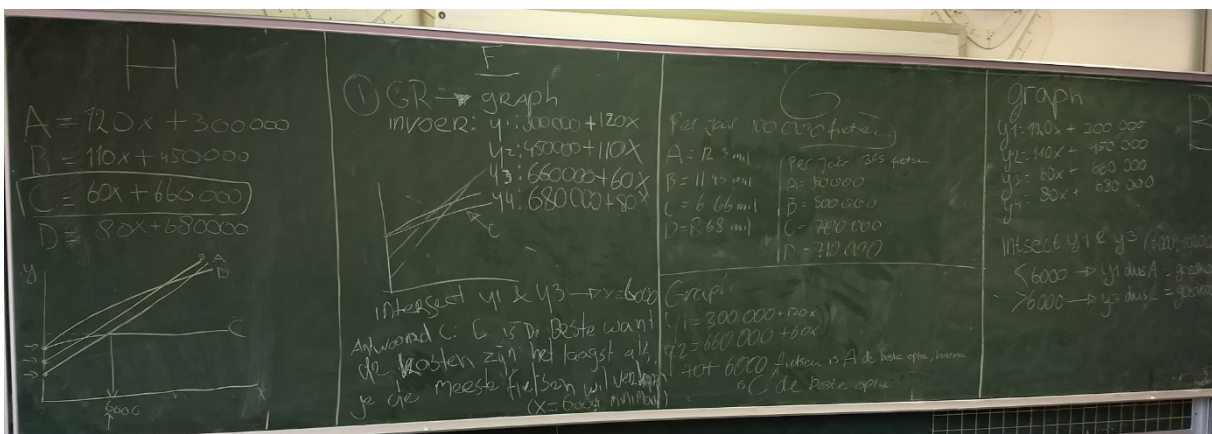 H
A = 120x + 300000
B = 110x + 450000
C = 60x + 660000
D = 80x + 680000
y
A
D
C
x
6000
F
① GR → graph
invoer: y1: 300000 + 120x
y2: 450000 + 110x
y3: 660000 + 60x
y4: 680000 + 80x
C
intersect y1 & y3 → x=6000
Antwoord C: C is De Beste want
de kosten zijn het laagst als
je die meeste fietsen wil
(x=6000 minimaal)
G
Per jaar 100 000 fietsen
A = 12.3 mil
B = 11.45 mil
C = 6.66 mil
D = 8.68 mil
Per jaar 365 fietsen
B = 500 000
C = 700 000
D = 710 000
Graph:
y1 = 300.000 + 120x
y2 = 660.000 + 60x
tot 6000 fietsen is A de beste optie, hierna
is C de beste optie
graph
y1 = 120x + 300 000
y2 = 110x + 450 000
y3 = 60x + 660 000
y4 = 80x + 680 000
B
Intsect y1 & y3
<6000 → y1 dus A =
>6000 → y3 dus C =